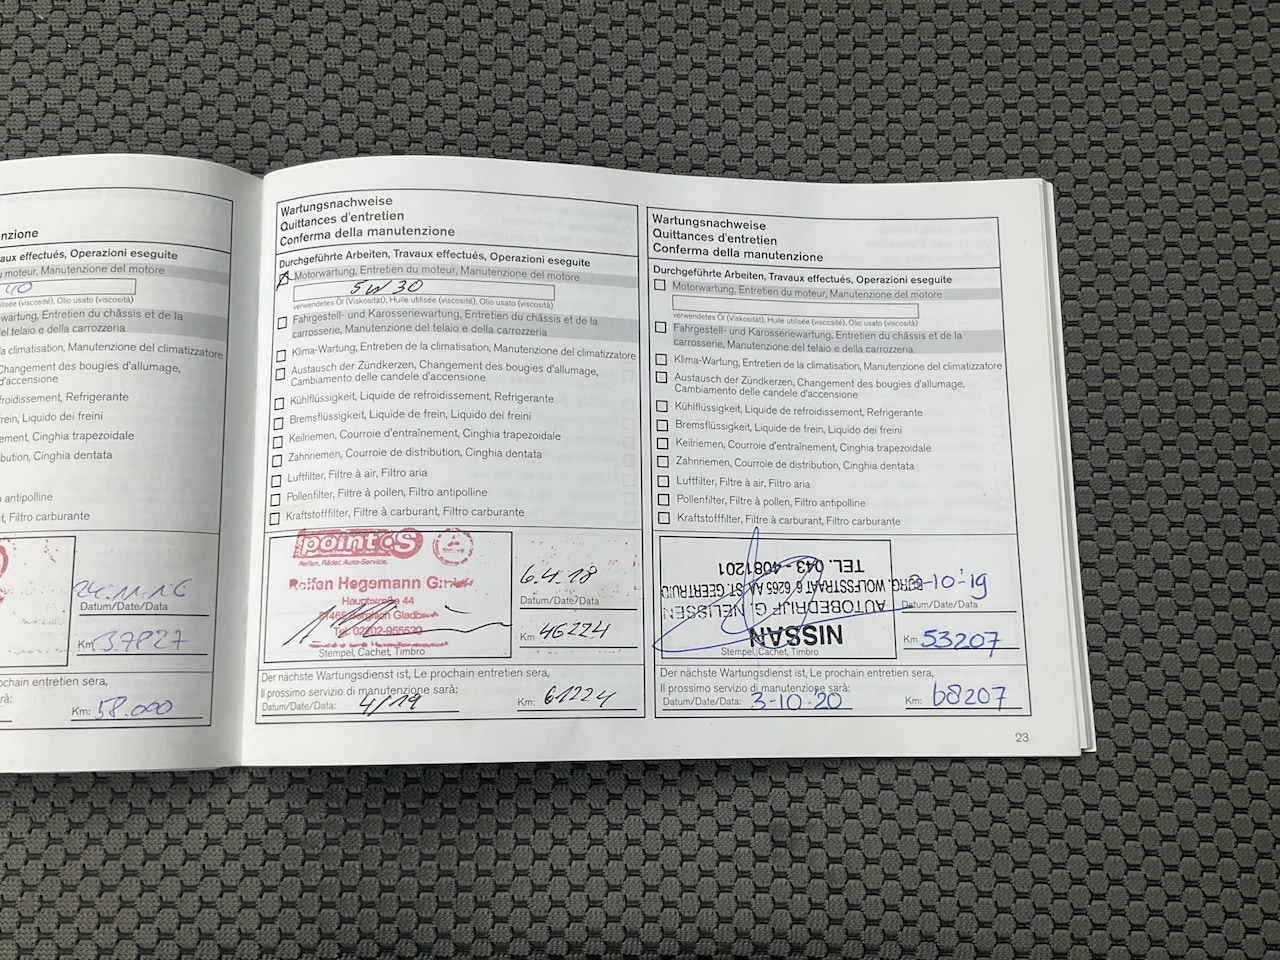 nzione
aux effectués, Operazioni eseguite
u moteur, Manutenzione del motore
40
ilisée (viscosité), Olio usato (viscosità)
wartung, Entretien du châssis et de la
el telaio e della carrozzeria
la climatisation, Manutenzione del climatizzatore
Changement des bougies d'allumage,
d'accensione
froidissement, Refrigerante
frein, Liquido dei freini
ement, Cinghia trapezoidale
bution, Cinghia dentata
n antipolline
t, Filtro carburante
24.11.16
Datum/Date/Data
Km 37827
chain entretien sera,
rà:
Km: 58.000
Wartungsnachweise
Quittances d'entretien
Conferma della manutenzione
Durchgeführte Arbeiten, Travaux effectués, Operazioni eseguite
Motorwartung, Entretien du moteur, Manutenzione del motore
5W30
verwendetes Öl (Viskosität), Huile utilisée (viscosité), Olio usato (viscosità)
Fahrgestell- und Karosseriewartung, Entretien du châssis et de la
carrosserie, Manutenzione del telaio e della carrozzeria
Klima-Wartung, Entretien de la climatisation, Manutenzione del climatizzatore
Austausch der Zündkerzen, Changement des bougies d'allumage,
Cambiamento delle candele d'accensione
Kühlflüssigkeit, Liquide de refroidissement, Refrigerante
Bremsflüssigkeit, Liquide de frein, Liquido dei freini
Keilriemen, Courroie d'entraînement, Cinghia trapezoidale
Zahnriemen, Courroie de distribution, Cinghia dentata
Luftfilter, Filtre à air, Filtro aria
Pollenfilter, Filtre à pollen, Filtro antipolline
Kraftstofffilter, Filtre à carburant, Filtro carburante
point S
Reifen, Räder, Auto-Service.
Reifen Hegemann GmbH
Hauptstraße 44
51465 Bergisch Gladbach
Tel. 02202-955520
Stempel, Cachet, Timbro
6.4.18
Datum/Date/Data
Km 46224
Der nächste Wartungsdienst ist, Le prochain entretien sera,
Il prossimo servizio di manutenzione sarà:
Datum/Date/Data: 4/19
Km: 61224
Wartungsnachweise
Quittances d'entretien
Conferma della manutenzione
Durchgeführte Arbeiten, Travaux effectués, Operazioni eseguite
Motorwartung, Entretien du moteur, Manutenzione del motore
verwendetes Öl (Viskosität), Huile utilisée (viscosité), Olio usato (viscosità)
Fahrgestell- und Karosseriewartung, Entretien du châssis et de la
carrosserie, Manutenzione del telaio e della carrozzeria
Klima-Wartung, Entretien de la climatisation, Manutenzione del climatizzatore
Austausch der Zündkerzen, Changement des bougies d'allumage,
Cambiamento delle candele d'accensione
Kühlflüssigkeit, Liquide de refroidissement, Refrigerante
Bremsflüssigkeit, Liquide de frein, Liquido dei freini
Keilriemen, Courroie d'entraînement, Cinghia trapezoidale
Zahnriemen, Courroie de distribution, Cinghia dentata
Luftfilter, Filtre à air, Filtro aria
Pollenfilter, Filtre à pollen, Filtro antipolline
Kraftstofffilter, Filtre à carburant, Filtro carburante
NISSAN
AUTOBEDRIJF G. NELISSEN
BURG. WOLFSSTRAAT 6 6265 AA ST. GEERTRUID
TEL. 043 - 4081201
Stempel, Cachet, Timbro
3-10-'19
Datum/Date/Data
Km 53207
Der nächste Wartungsdienst ist, Le prochain entretien sera,
Il prossimo servizio di manutenzione sarà:
Datum/Date/Data: 3-10-20
Km: 68207
23